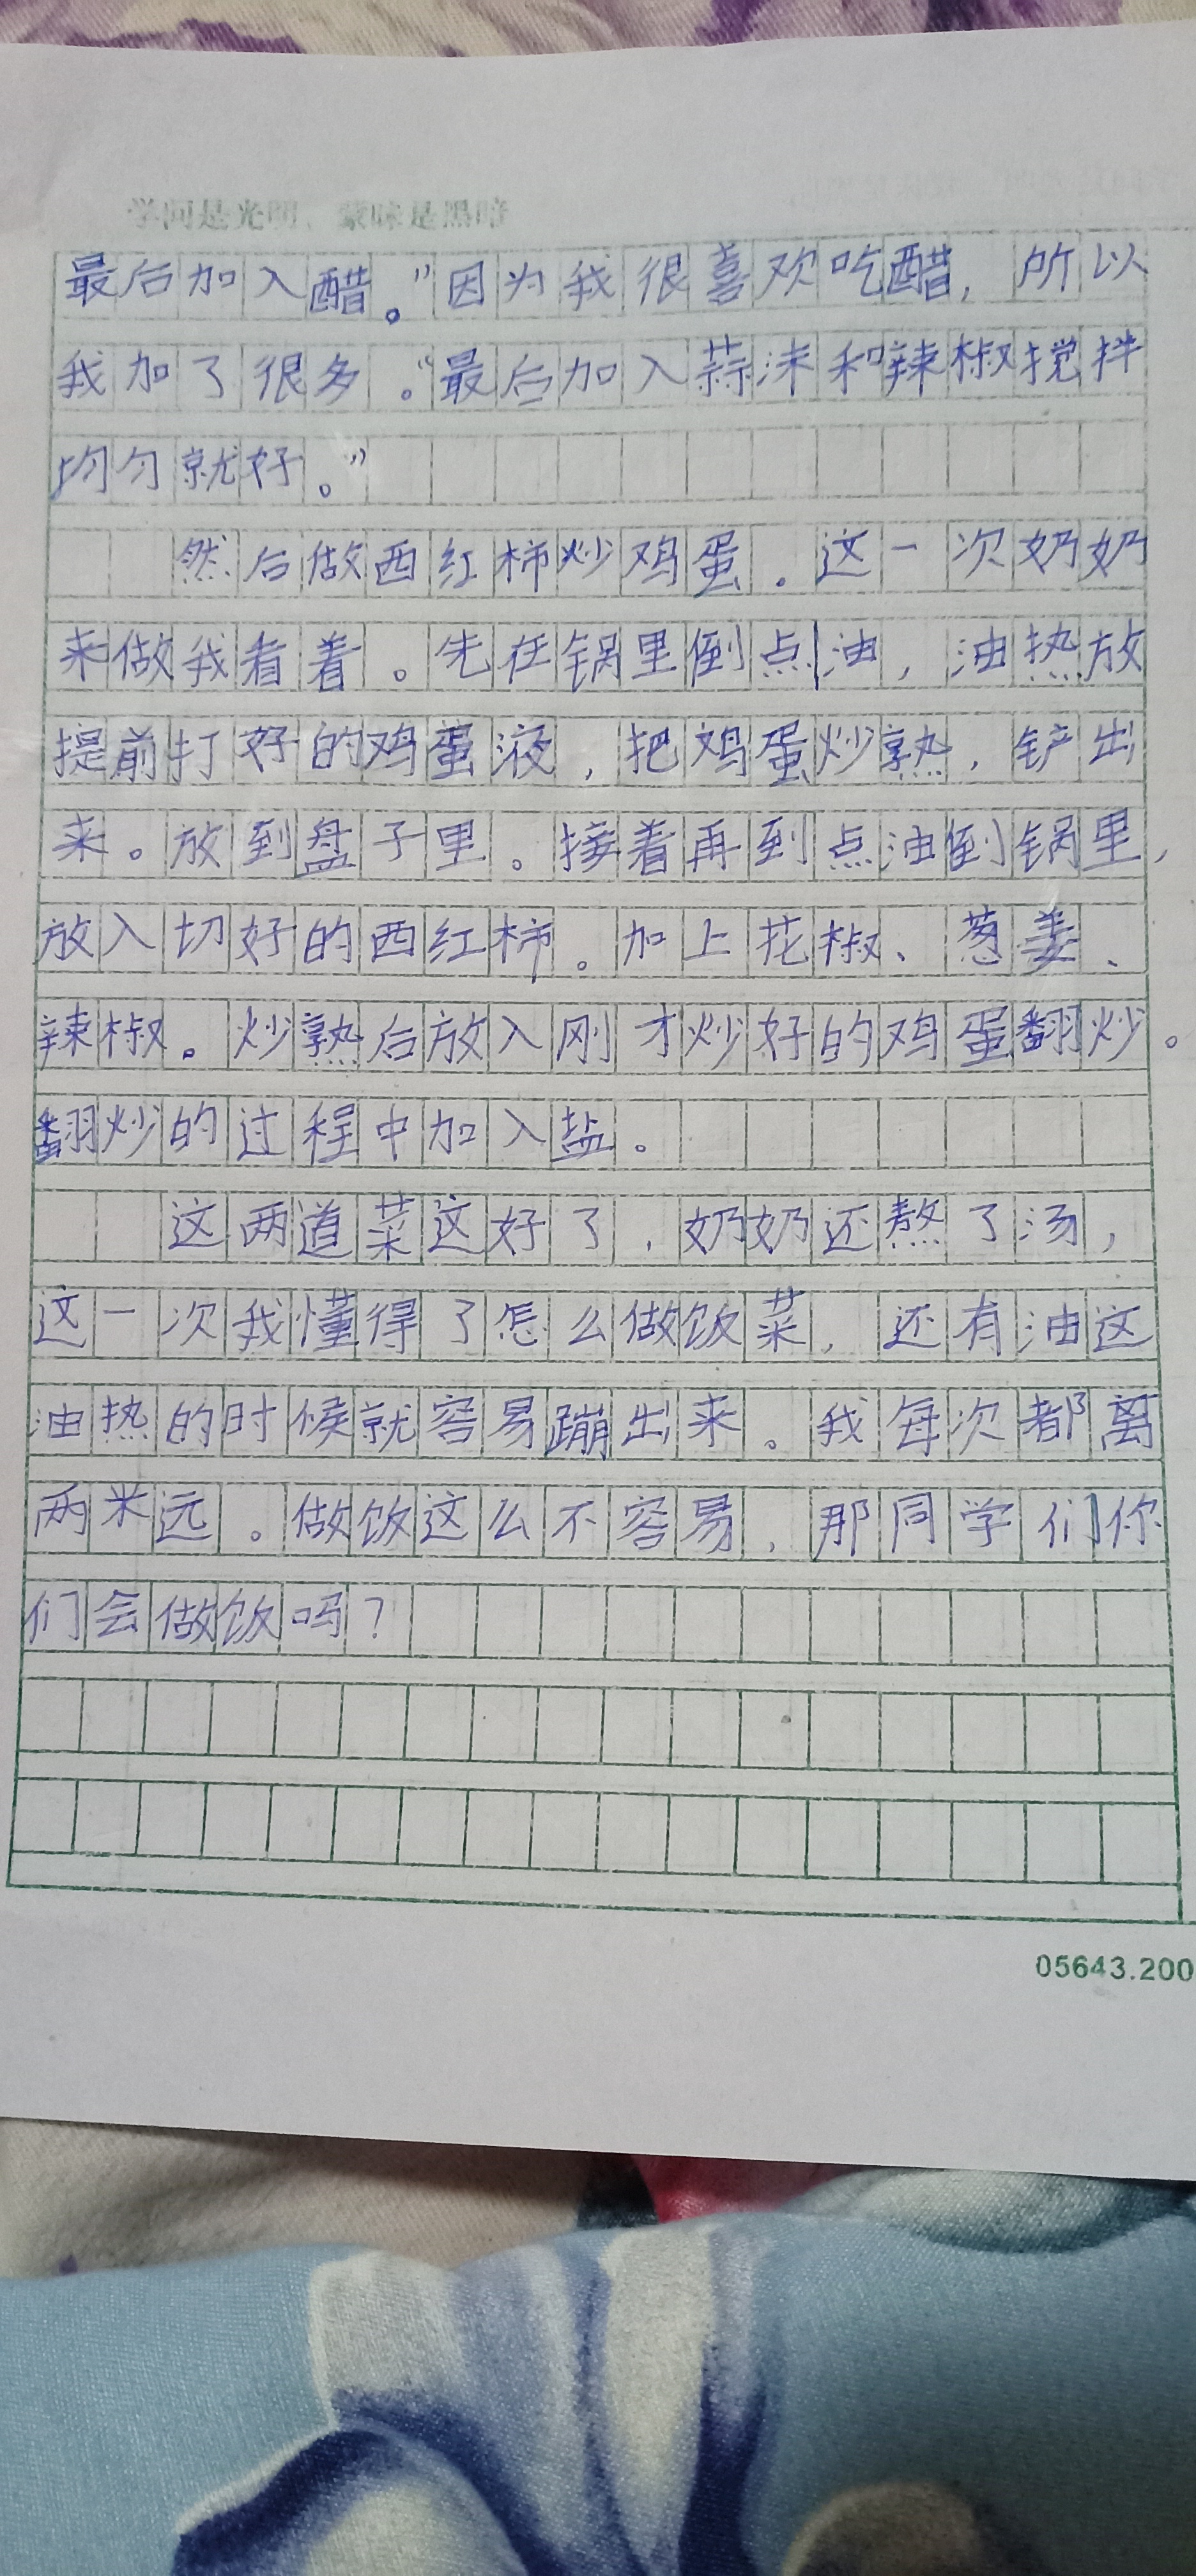 学问是光明，蒙昧是黑暗
最后加入醋。”因为我很喜欢吃醋，所以
我加了很多。“最后加入蒜沫和辣椒搅拌
均匀就好。”
然后做西红柿炒鸡蛋．这一次奶奶
来做我看着。先在锅里倒点油，油热放
提前打好的鸡蛋液，把鸡蛋炒熟，铲出
来。放到盘子里。接着再到点油倒锅里，
放入切好的西红柿。加上花椒、葱姜、
辣椒。炒熟后放入刚才炒好的鸡蛋翻炒。
翻炒的过程中加入盐。
这两道菜这好了，奶奶还熬了汤，
这一次我懂得了怎么做饭菜，还有油这
油热的时候就容易蹦出来。我每次都离
两米远。做饭这么不容易，那同学们你
们会做饭吗？
05643.200